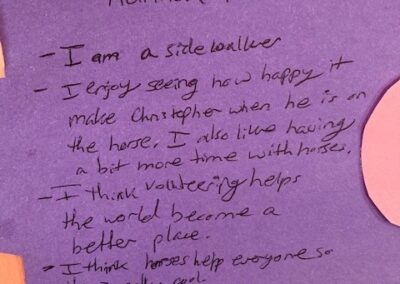 - I am a sidewalker
- I enjoy seeing how happy it
make Christopher when he is on
the horse. I also like having
a bit more time with horses.
- I think volunteering helps
the world become a
better place.
- I think horses help everyone so